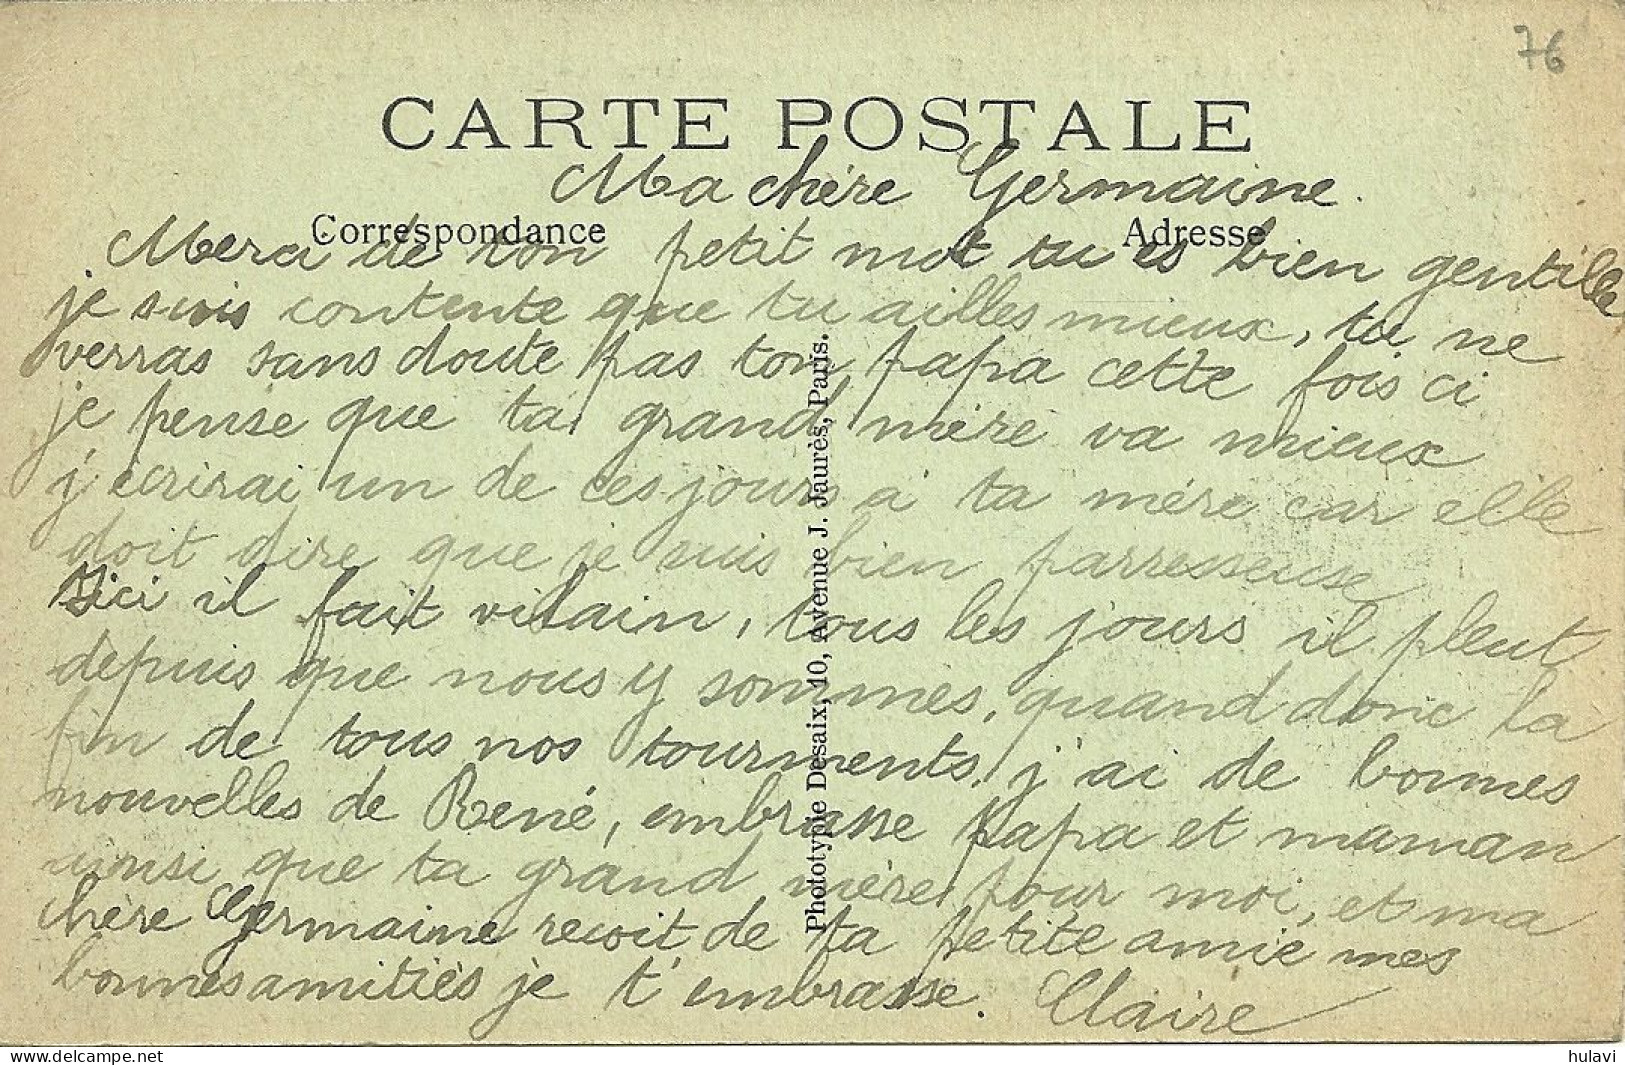 76
CARTE POSTALE
Ma chère Germaine.
Correspondance
Adresse
Merci de ton petit mot tu es bien gentille
je suis contente que tu ailles mieux, tu ne
verras sans doute pas ton papa cette fois ci
je pense que ta grand mère va mieux
j'écrirai un de ces jours à ta mère car elle
doit dire que je suis bien parresseuse
ici il fait vilain, tous les jours il pleut
depuis que nous y sommes, quand donc la
fin de tous nos tourments, j'ai de bonnes
nouvelles de René, embrasse papa et maman
ainsi que ta grand mère pour moi, et ma
chère Germaine reçoit de ta petite amie mes
bonnes amitiés je t'embrasse. Claire
Phototypie Desaix, 10, Avenue J. Jaurès, Paris.
hulavi